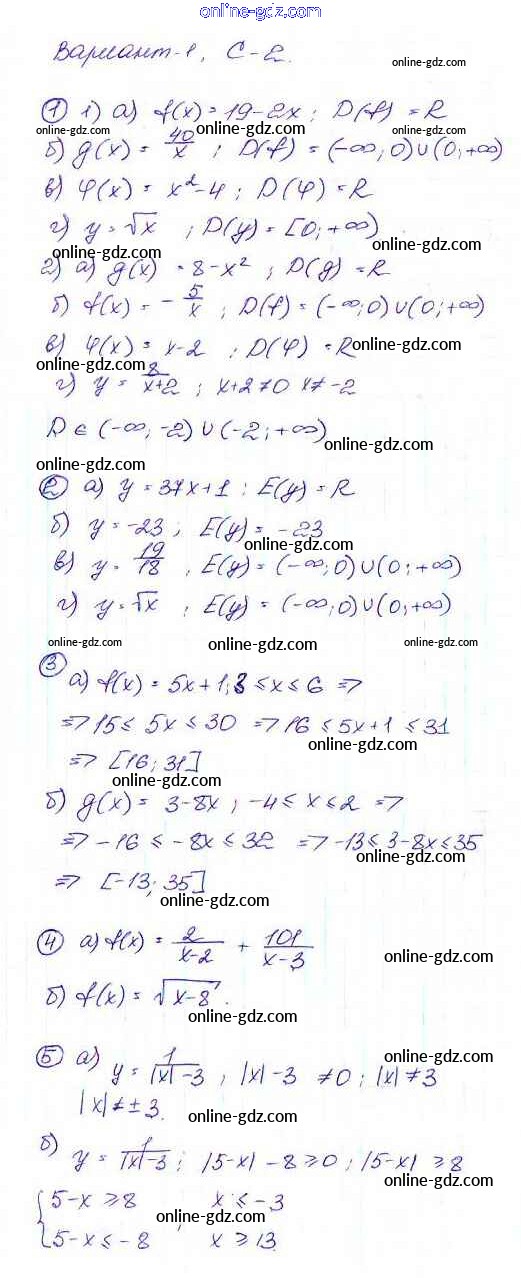 online-gdz.com
Вариант-1, С-2.
online-gdz.com
① 1) а) f(x) = 19-2x ; D(f) = R
online-gdz.com online-gdz.com
б) g(x) = 40/x ; D(f) = (-∞; 0) ∪ (0; +∞)
в) φ(x) = x² - 4 ; D(φ) = R
г) y = √x ; D(y) = [0; +∞)
online-gdz.com online-gdz.com
2) а) g(x) = 8 - x² ; D(g) = R
б) f(x) = - 5/x ; D(f) = (-∞; 0) ∪ (0; +∞)
в) φ(x) = x-2 ; D(φ) = R
online-gdz.com
online-gdz.com
г) y = 8/(x+2) ; x+2 ≠ 0 x ≠ -2
D ∈ (-∞; -2) ∪ (-2; +∞)
online-gdz.com
online-gdz.com
② а) y = 37x+1 ; E(y) = R
б) y = -23 ; E(y) = -23
online-gdz.com
в) y = 19/18 , E(y) = (-∞; 0) ∪ (0; +∞)
online-gdz.com
г) y = √x , E(y) = (-∞; 0) ∪ (0; +∞)
online-gdz.com online-gdz.com online-gdz.com
③
а) f(x) = 5x+1, 3 ≤ x ≤ 6 =>
=> 15 ≤ 5x ≤ 30 => 16 ≤ 5x+1 ≤ 31
online-gdz.com
=> [16; 31]
online-gdz.com
б) g(x) = 3-8x ; -4 ≤ x ≤ 2 =>
=> -16 ≤ -8x ≤ 32 => -13 ≤ 3-8x ≤ 35
online-gdz.com
=> [-13; 35]
online-gdz.com
④ а) f(x) = 2/(x-2) + 101/(x-3)
online-gdz.com
б) f(x) = √(x-8).
online-gdz.com
⑤ а) y = 1/(|x|-3) ; |x|-3 ≠ 0 ; |x| ≠ 3
online-gdz.com
|x| ≠ ± 3.
online-gdz.com
б) y = 1/(|x|-3) ; |5-x| - 8 ≥ 0 ; |5-x| ≥ 8
online-gdz.com
{ 5-x ≥ 8 x ≤ -3
online-gdz.com
5-x ≤ -8 x ≥ 13.
online-gdz.com